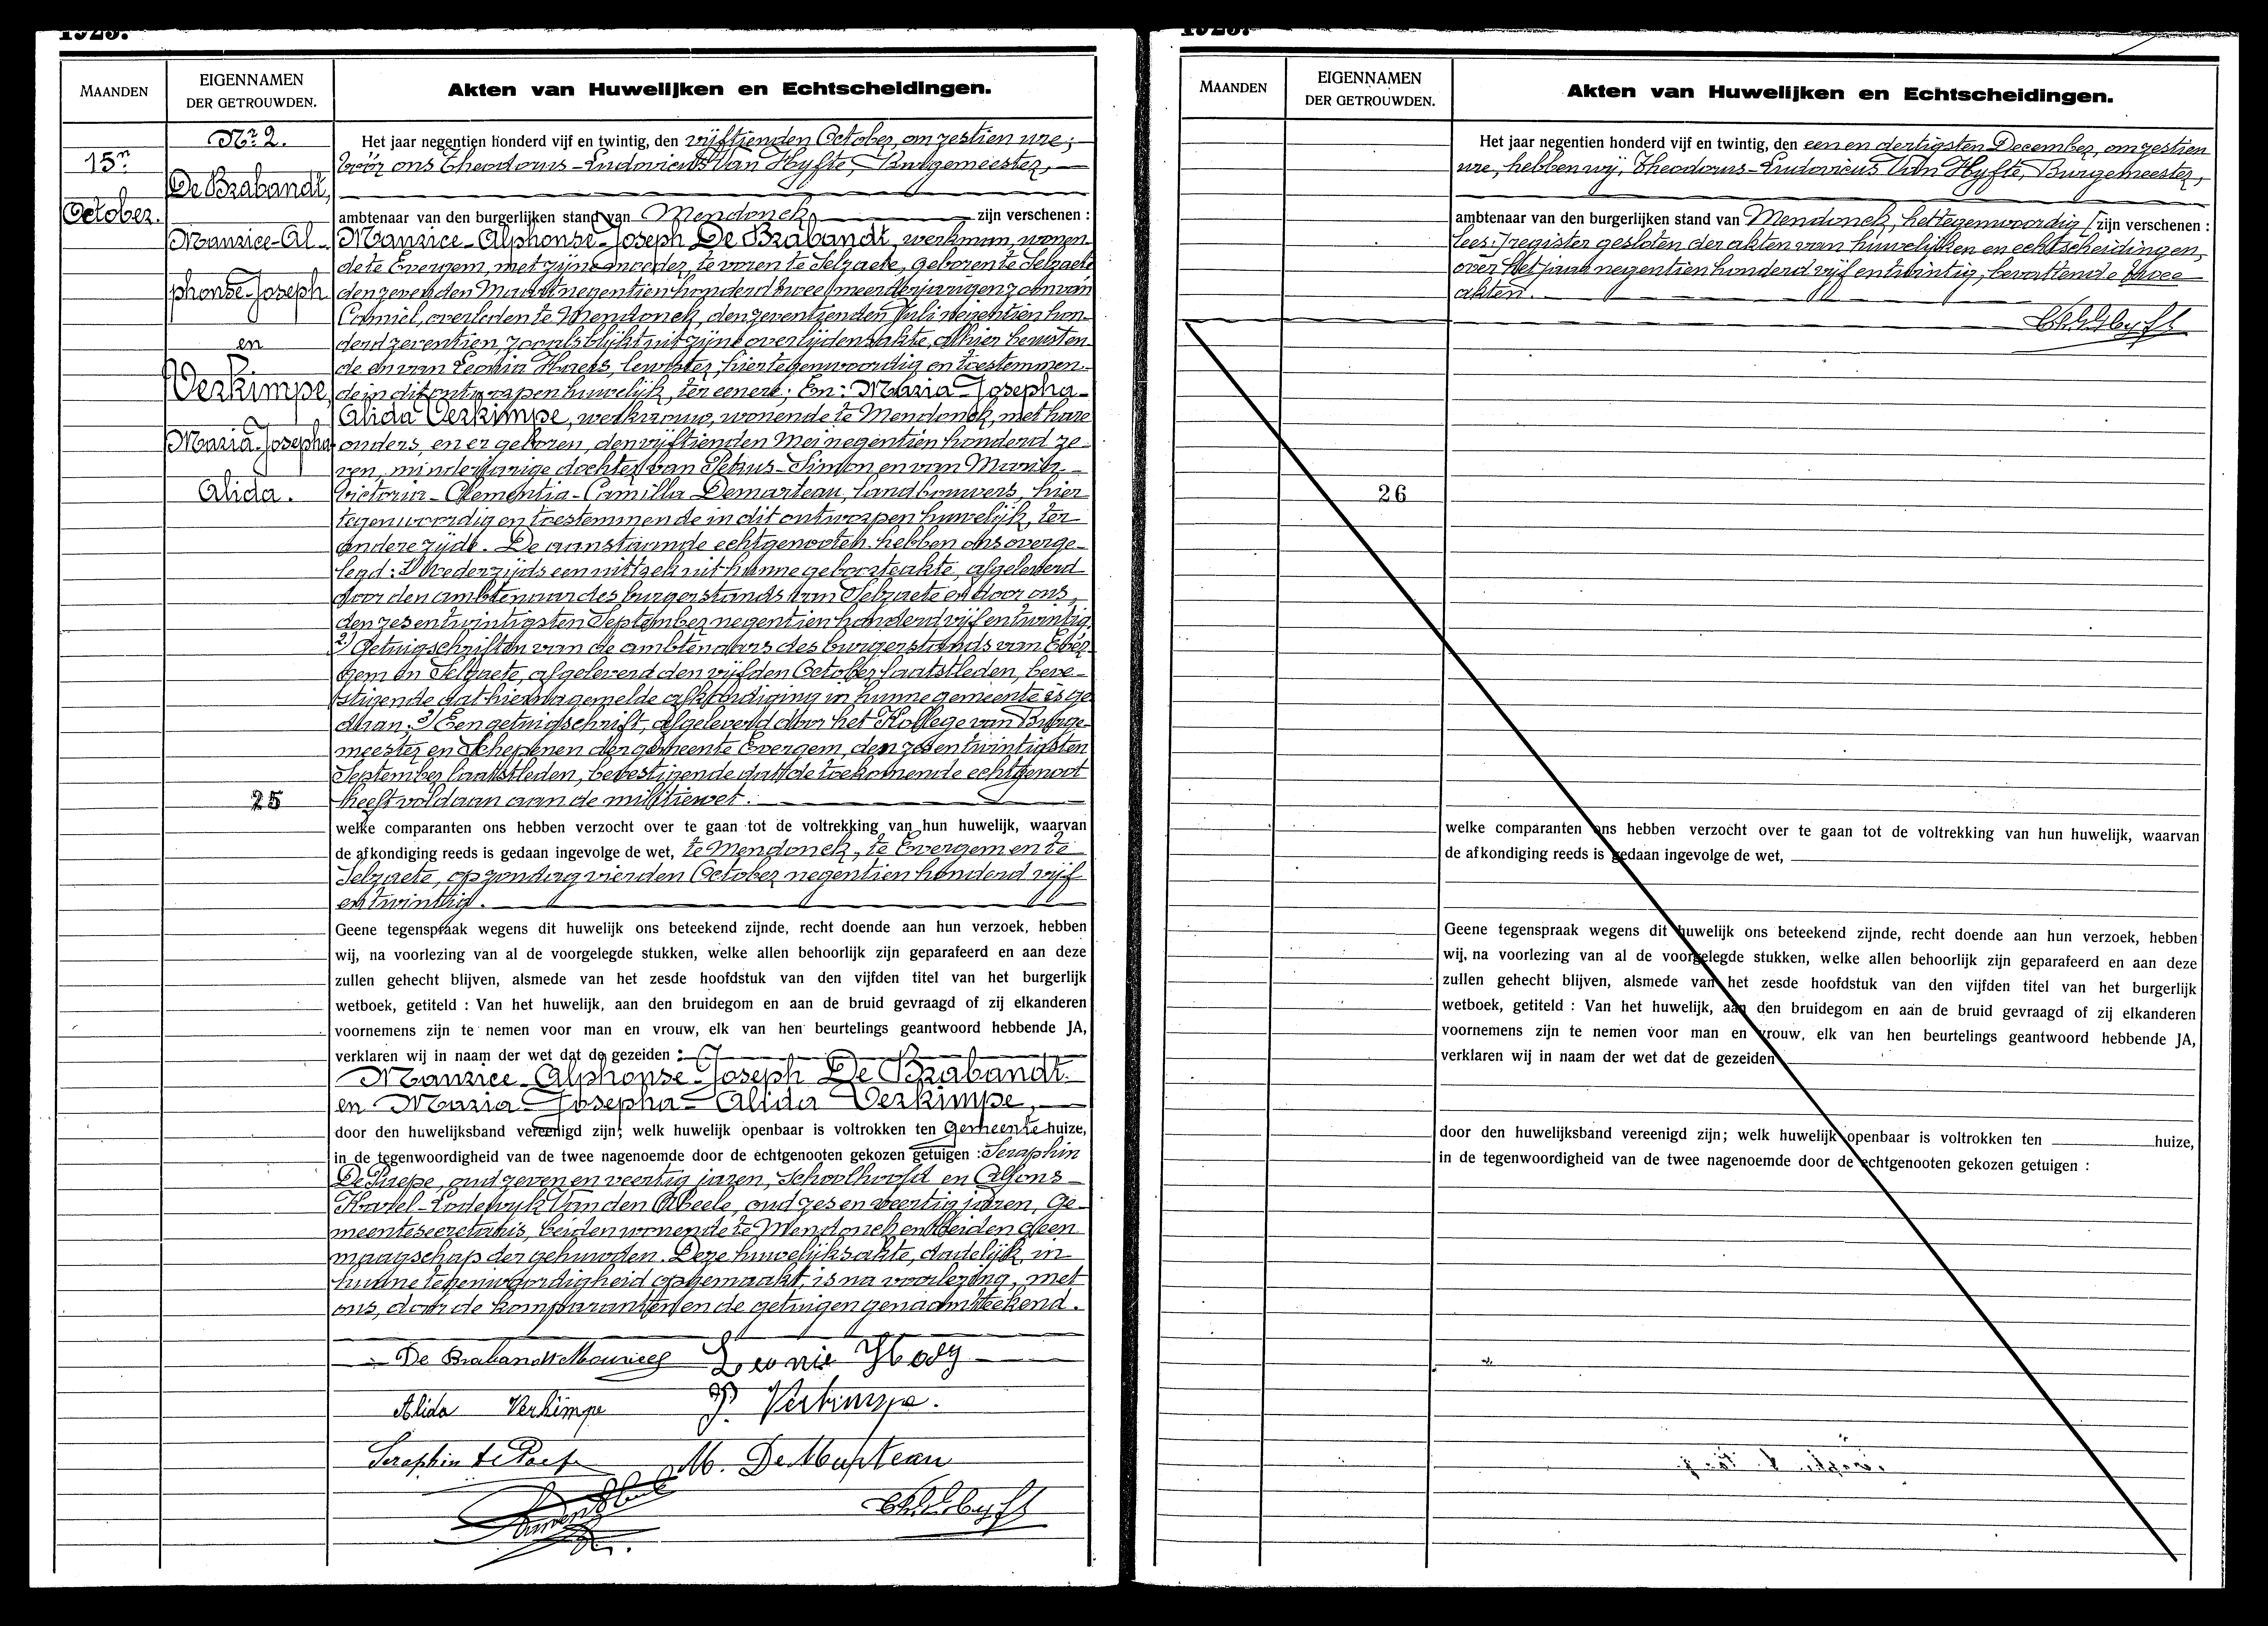 1925.
MAANDEN
EIGENNAMEN
DER GETROUWDEN.
Akten van Huwelijken en Echtscheidingen.
Nr 2.
15n
October.
De Brabandt,
Maurice-Al-
phonse-Joseph
en
Verkimpe,
Maria-Josepha
Alida.
25
Het jaar negentien honderd vijf en twintig, den vijftienden October, om zestien ure;
vóór ons Theodorus-Ludovicus Van Hyfte, Burgemeester,
ambtenaar van den burgerlijken stand van Mendonck, zijn verschenen :
Maurice-Alphonse-Joseph De Brabandt, werkman, wonen-
de te Evergem, met zijne moeder, te voren te Selzaete, geboren te Selzaete
den zevenden Maart negentien honderd twee, meerderjarigen zoon van
Camiel, overleden te Mendonck, den zeventienden Juli negentien hon-
derd zeventien, zooals blijkt uit zijne overlijdensakte, alhier berusten-
de en van Leonia Haers, leurster, hier tegenwoordig en toestemmen-
de in dit ontworpen huwelijk, ter eenere; En: Maria-Josepha-
Alida Verkimpe, werkvrouw, wonende te Mendonck, met hare
ouders, en er geboren, den vijftienden Mei negentien honderd ze-
ven, minderjarige dochter van Petrus-Simon en van Maria-
Victoria-Clementia-Camilla Demarteau, landbouwers, hier
tegenwoordig en toestemmende in dit ontworpen huwelijk, ter
andere zijde. De aanstaande echtgenooten hebben ons overge-
legd: 1) Wederzijds een uittrek uit hunne geboorteakte, afgeleverd
door den ambtenaar des burgerstands van Selzaete en door ons,
den zes en twintigsten September negentien honderd vijf en twintig.
2) Getuigschriften van de ambtenaars des burgerstands van Ever-
gem en Selzaete, afgeleverd den vijfden October laatstleden, beve-
stigende dat hiernagemelde afkondiging in hunne gemeente is ge-
daan; 3) Een getuigschrift, afgeleverd door het Kollege van Burge-
meester en Schepenen der gemeente Evergem, den zes en twintigsten
September laatstleden, bevestigende dat de toekomende echtgenoot
heeft voldaan aan de militiewet.
welke comparanten ons hebben verzocht over te gaan tot de voltrekking van hun huwelijk, waarvan
de afkondiging reeds is gedaan ingevolge de wet, te Mendonck, te Evergem en te
Selzaete, op zondag vierden October negentien honderd vijf
en twintig.
Geene tegenspraak wegens dit huwelijk ons beteekend zijnde, recht doende aan hun verzoek, hebben
wij, na voorlezing van al de voorgelegde stukken, welke allen behoorlijk zijn geparafeerd en aan deze
zullen gehecht blijven, alsmede van het zesde hoofdstuk van den vijfden titel van het burgerlijk
wetboek, getiteld : Van het huwelijk, aan den bruidegom en aan de bruid gevraagd of zij elkanderen
voornemens zijn te nemen voor man en vrouw, elk van hen beurtelings geantwoord hebbende JA,
verklaren wij in naam der wet dat de gezeiden :
Maurice-Alphonse-Joseph De Brabandt
en Maria-Josepha-Alida Verkimpe,
door den huwelijksband vereenigd zijn; welk huwelijk openbaar is voltrokken ten gemeentehuize,
in de tegenwoordigheid van de twee nagenoemde door de echtgenooten gekozen getuigen : Seraphin
De Paepe, oud zeven en veertig jaren, schoolhoofd en Alfons-
Karel-Lodewyk Van den Abeele, oud zes en veertig jaren, ge-
meentesecretaris, beiden wonende te Mendonck en beiden geen
maagschap der gehuwden. Deze huwelijksakte, dadelijk, in
hunne tegenwoordigheid opgemaakt, is na voorlezing, met
ons, door de komparanten en de getuigen genaamteekend.
De Brabandt Maurice Leonie
Alida Verkimpe P. Verkimpe.
Seraphin de Paepe M. De Marteau
1925.
MAANDEN
EIGENNAMEN
DER GETROUWDEN.
Akten van Huwelijken en Echtscheidingen.
26
Het jaar negentien honderd vijf en twintig, den een en dertigsten December, om zestien
ure, hebben wij, Theodorus-Ludovicus Van Hyfte, Burgemeester,
ambtenaar van den burgerlijken stand van Mendonck, het tegenwoordig [zijn verschenen :
lees:] register gesloten der akten van huwelijken en echtscheidingen,
over het jaar negentien honderd vijf en twintig, bevattende twee
akten.
welke comparanten ons hebben verzocht over te gaan tot de voltrekking van hun huwelijk, waarvan
de afkondiging reeds is gedaan ingevolge de wet,
Geene tegenspraak wegens dit huwelijk ons beteekend zijnde, recht doende aan hun verzoek, hebben
wij, na voorlezing van al de voorgelegde stukken, welke allen behoorlijk zijn geparafeerd en aan deze
zullen gehecht blijven, alsmede van het zesde hoofdstuk van den vijfden titel van het burgerlijk
wetboek, getiteld : Van het huwelijk, aan den bruidegom en aan de bruid gevraagd of zij elkanderen
voornemens zijn te nemen voor man en vrouw, elk van hen beurtelings geantwoord hebbende JA,
verklaren wij in naam der wet dat de gezeiden
door den huwelijksband vereenigd zijn; welk huwelijk openbaar is voltrokken ten huize,
in de tegenwoordigheid van de twee nagenoemde door de echtgenooten gekozen getuigen :